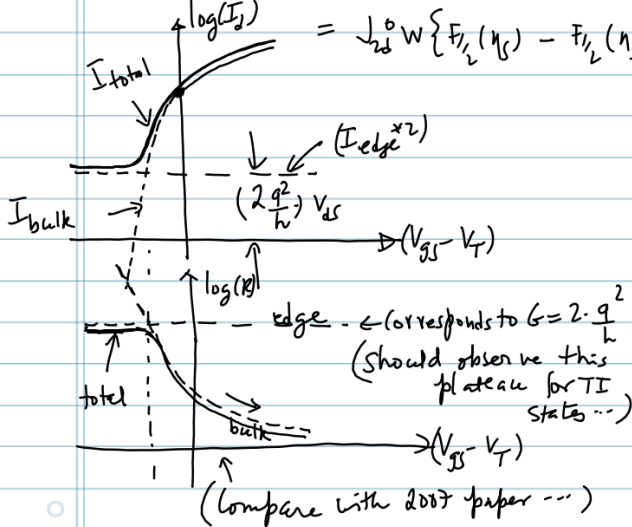 log(I_d) = J_2d^0 W{F_1/2(η_s) - F_1/2(η
I_total
(I_edge*2)
(2 q²/h) V_ds
I_bulk
(V_gs - V_T)
log(R)
edge ← corresponds to G = 2·q²/h
(should observe this
plateau for TI
states ...)
total
bulk
(V_gs - V_T)
(Compare with 2007 paper ...)